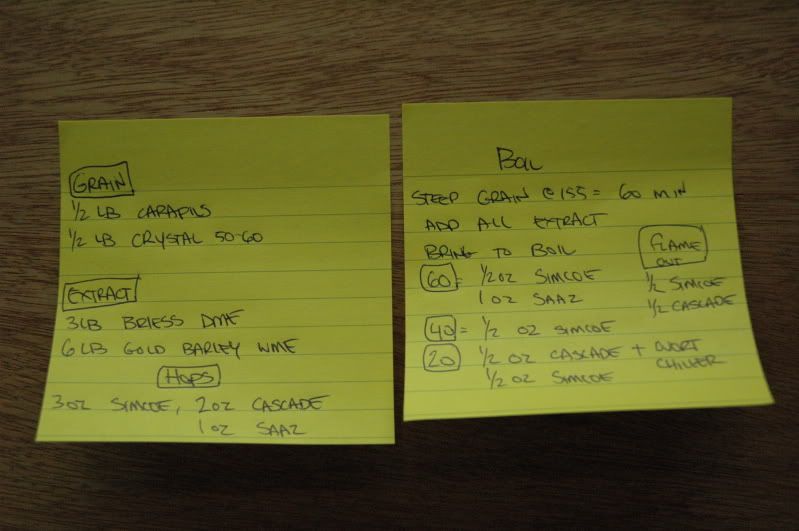 GRAIN
1/2 LB CARAPILS
1/2 LB CRYSTAL 50-60
EXTRACT
3LB BRIESS DME
6 LB GOLD BARLEY WME
HOPS
3OZ SIMCOE, 2OZ CASCADE
1OZ SAAZ
BOIL
STEEP GRAIN @ 155 = 60 MIN
ADD ALL EXTRACT
BRING TO BOIL
60 = 1/2 OZ SIMCOE
1 OZ SAAZ
40 = 1/2 OZ SIMCOE
20 1/2 OZ CASCADE + WORT CHILLER
1/2 OZ SIMCOE
FLAME
OUT
1/2 SIMCOE
1/2 CASCADE